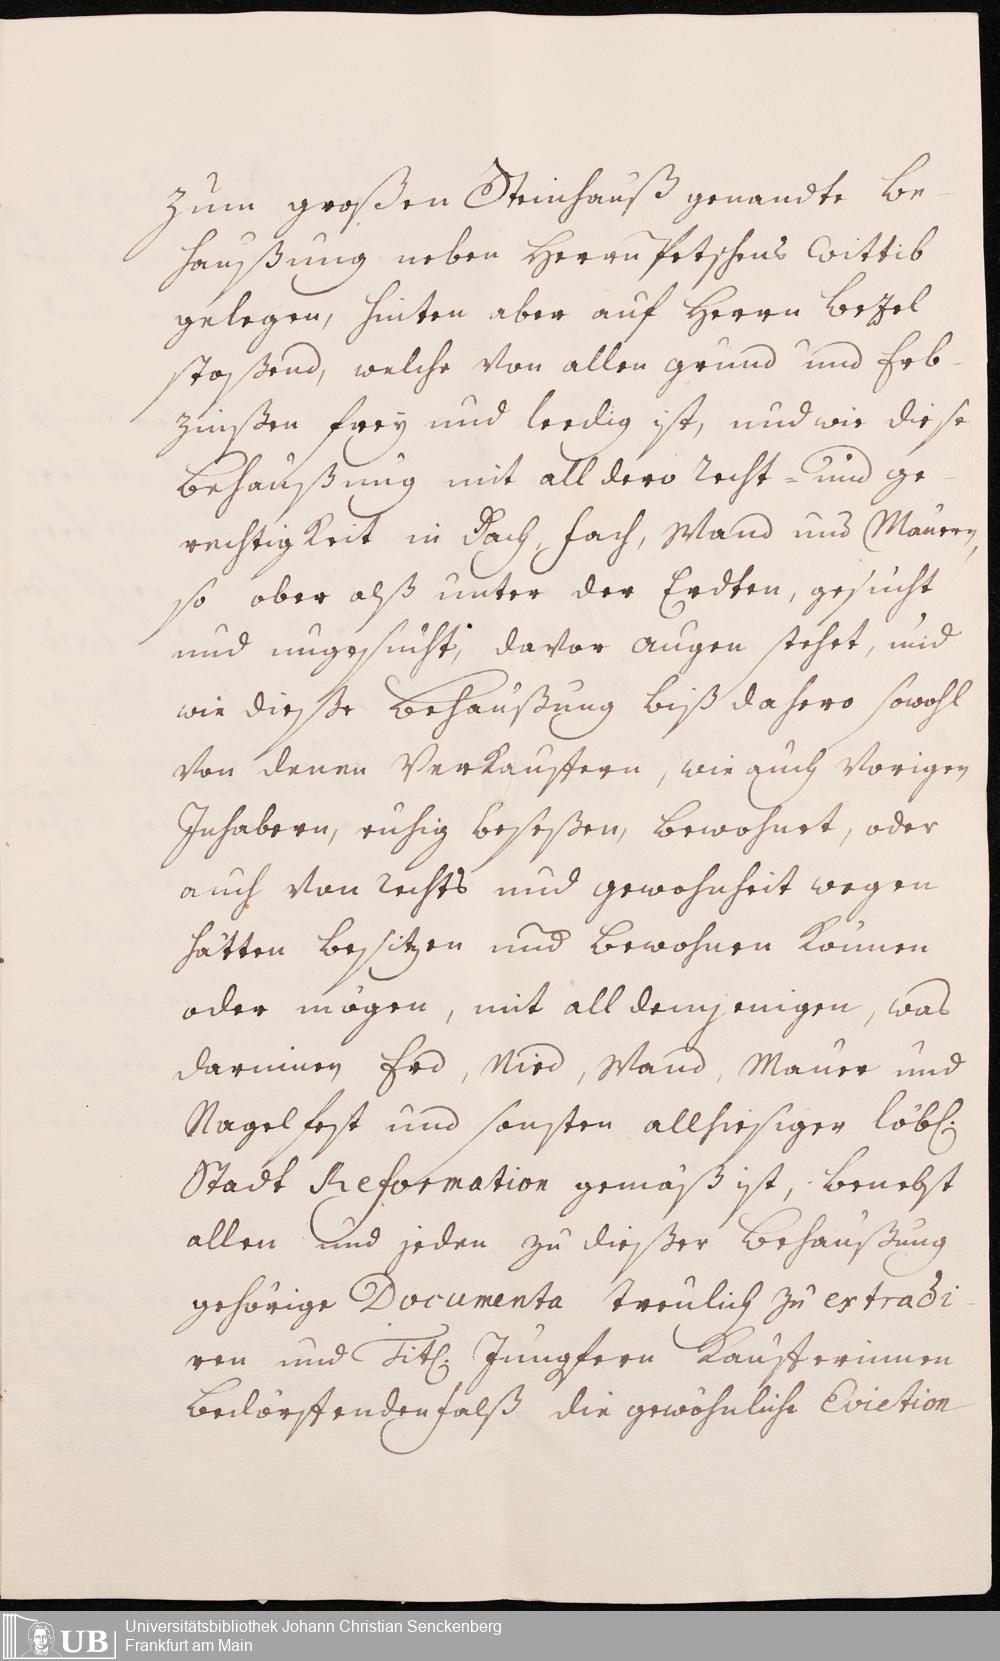 zum großen Steinhauß genandte Be-
haußung neben Herrn Petschens Wittib
gelegen, hinten aber auf Herrn Bezel
stoßend, welche von allen grund und Erb-
zinßen freÿ und leedig ist, und wie diese
Behaußung mit all dero recht- und ge-
rechtigkeit in Dach, fach, Wand und Mauern,
so ober alß unter der Erdten, gesucht
und ungesucht, da vor Augen stehet, und
wie dieße Behaußung biß dahero sowohl
von denen Verkäuffern, wie auch Vorigen
Inhabern, ruhig beseßen, bewohnet, oder
auch von rechts und gewohnheit wegen
hätten besitzen und bewohnen können
oder mögen, mit all demjenigen, was
darinnen Erd, Nied, Wand, Mauer und
Nagelfest und sonsten allhiesiger löbl:
Stadt Reformation gemäß ist, benebst
allen und jeden zu dießer Behaußung
gehörige Documenta treulich zu extradi-
ren und Titl: Jungfern Käufferinnen
bedörffendenfalß die gewöhnliche Eviction
Universitätsbibliothek Johann Christian Senckenberg
Frankfurt am Main
UB